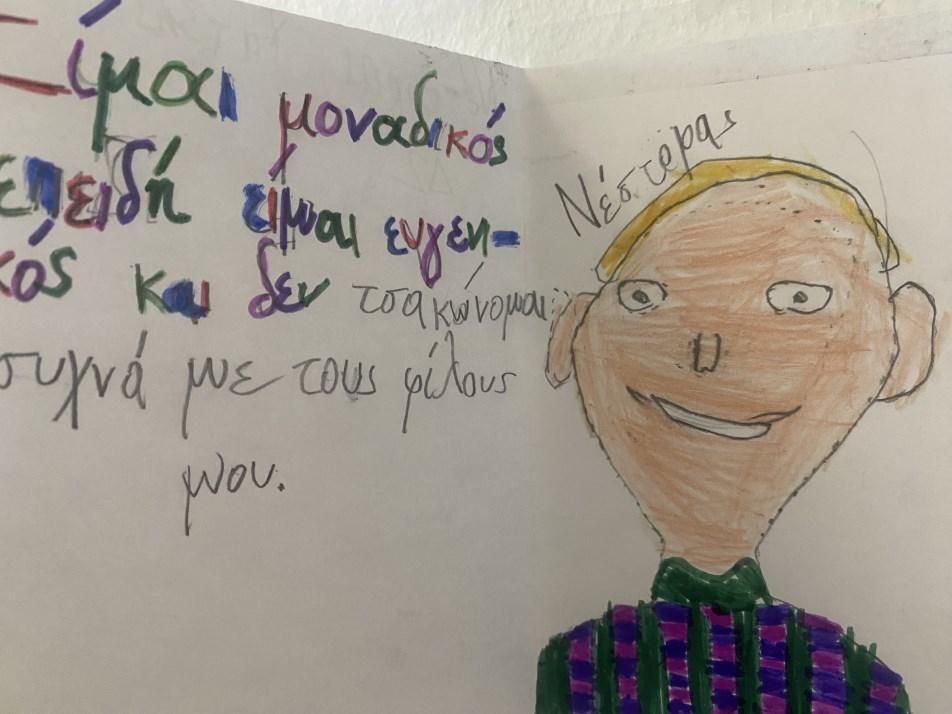 Είμαι μοναδικός
επειδή είμαι ευγενη-
κός και δεν τσακώνομαι
συγνά με τους φίλους
μου.
Νέστορας